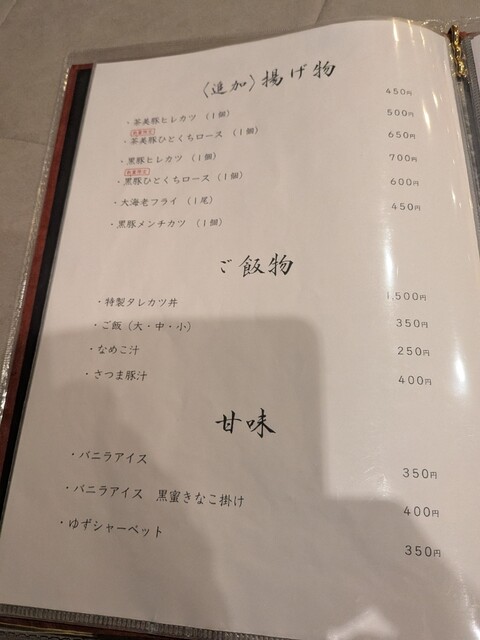 〈追加〉揚げ物
・茶美豚ヒレカツ (1個) 450円
・茶美豚ひとくちロース (1個) 500円
・黒豚ヒレカツ (1個) 650円
・黒豚ひとくちロース (1個) 700円
・大海老フライ (1尾) 600円
・黒豚メンチカツ (1個) 450円
ご飯物
・特製タレカツ丼 1,500円
・ご飯 (大・中・小) 350円
・なめこ汁 250円
・さつま豚汁 400円
甘味
・バニラアイス 350円
・バニラアイス 黒蜜きなこ掛け 400円
・ゆずシャーベット 350円